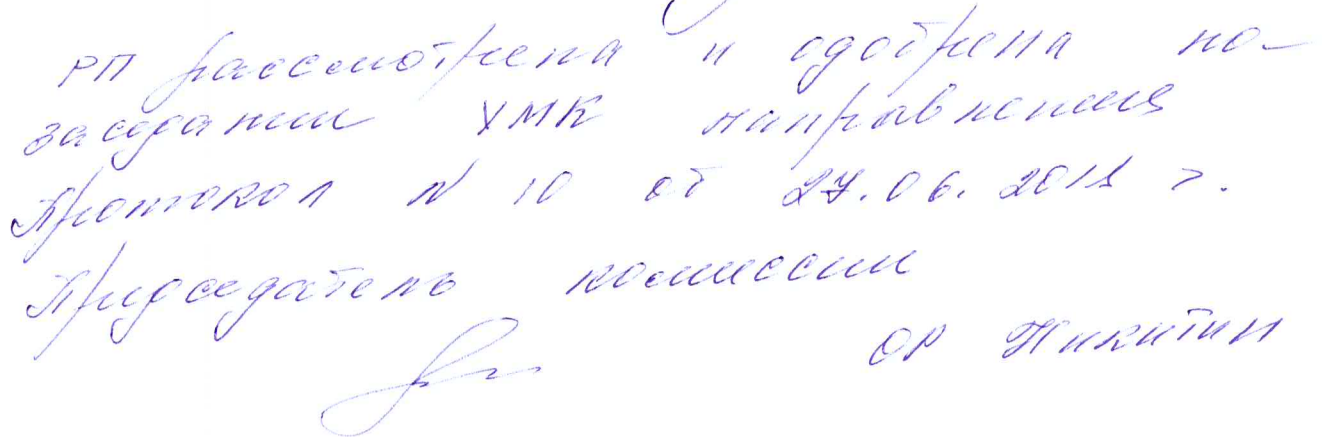 РП рассмотрена и одобрена на
заседании УМК направления
Протокол N 10 от 27.06.2018 г.
Председатель комиссии
ОР Никитин